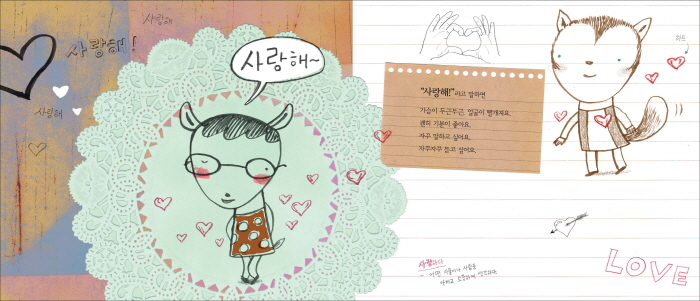 사랑해
사랑해!
사랑해
사랑해~
"사랑해!"라고 말하면
가슴이 두근두근, 얼굴이 빨개져요.
괜히 기분이 좋아요.
자꾸 말하고 싶어요.
자꾸자꾸 듣고 싶어요.
하트
사랑하다
- 어떤 사물이나 사람을
아끼고 소중하게 생각하다.
LOVE